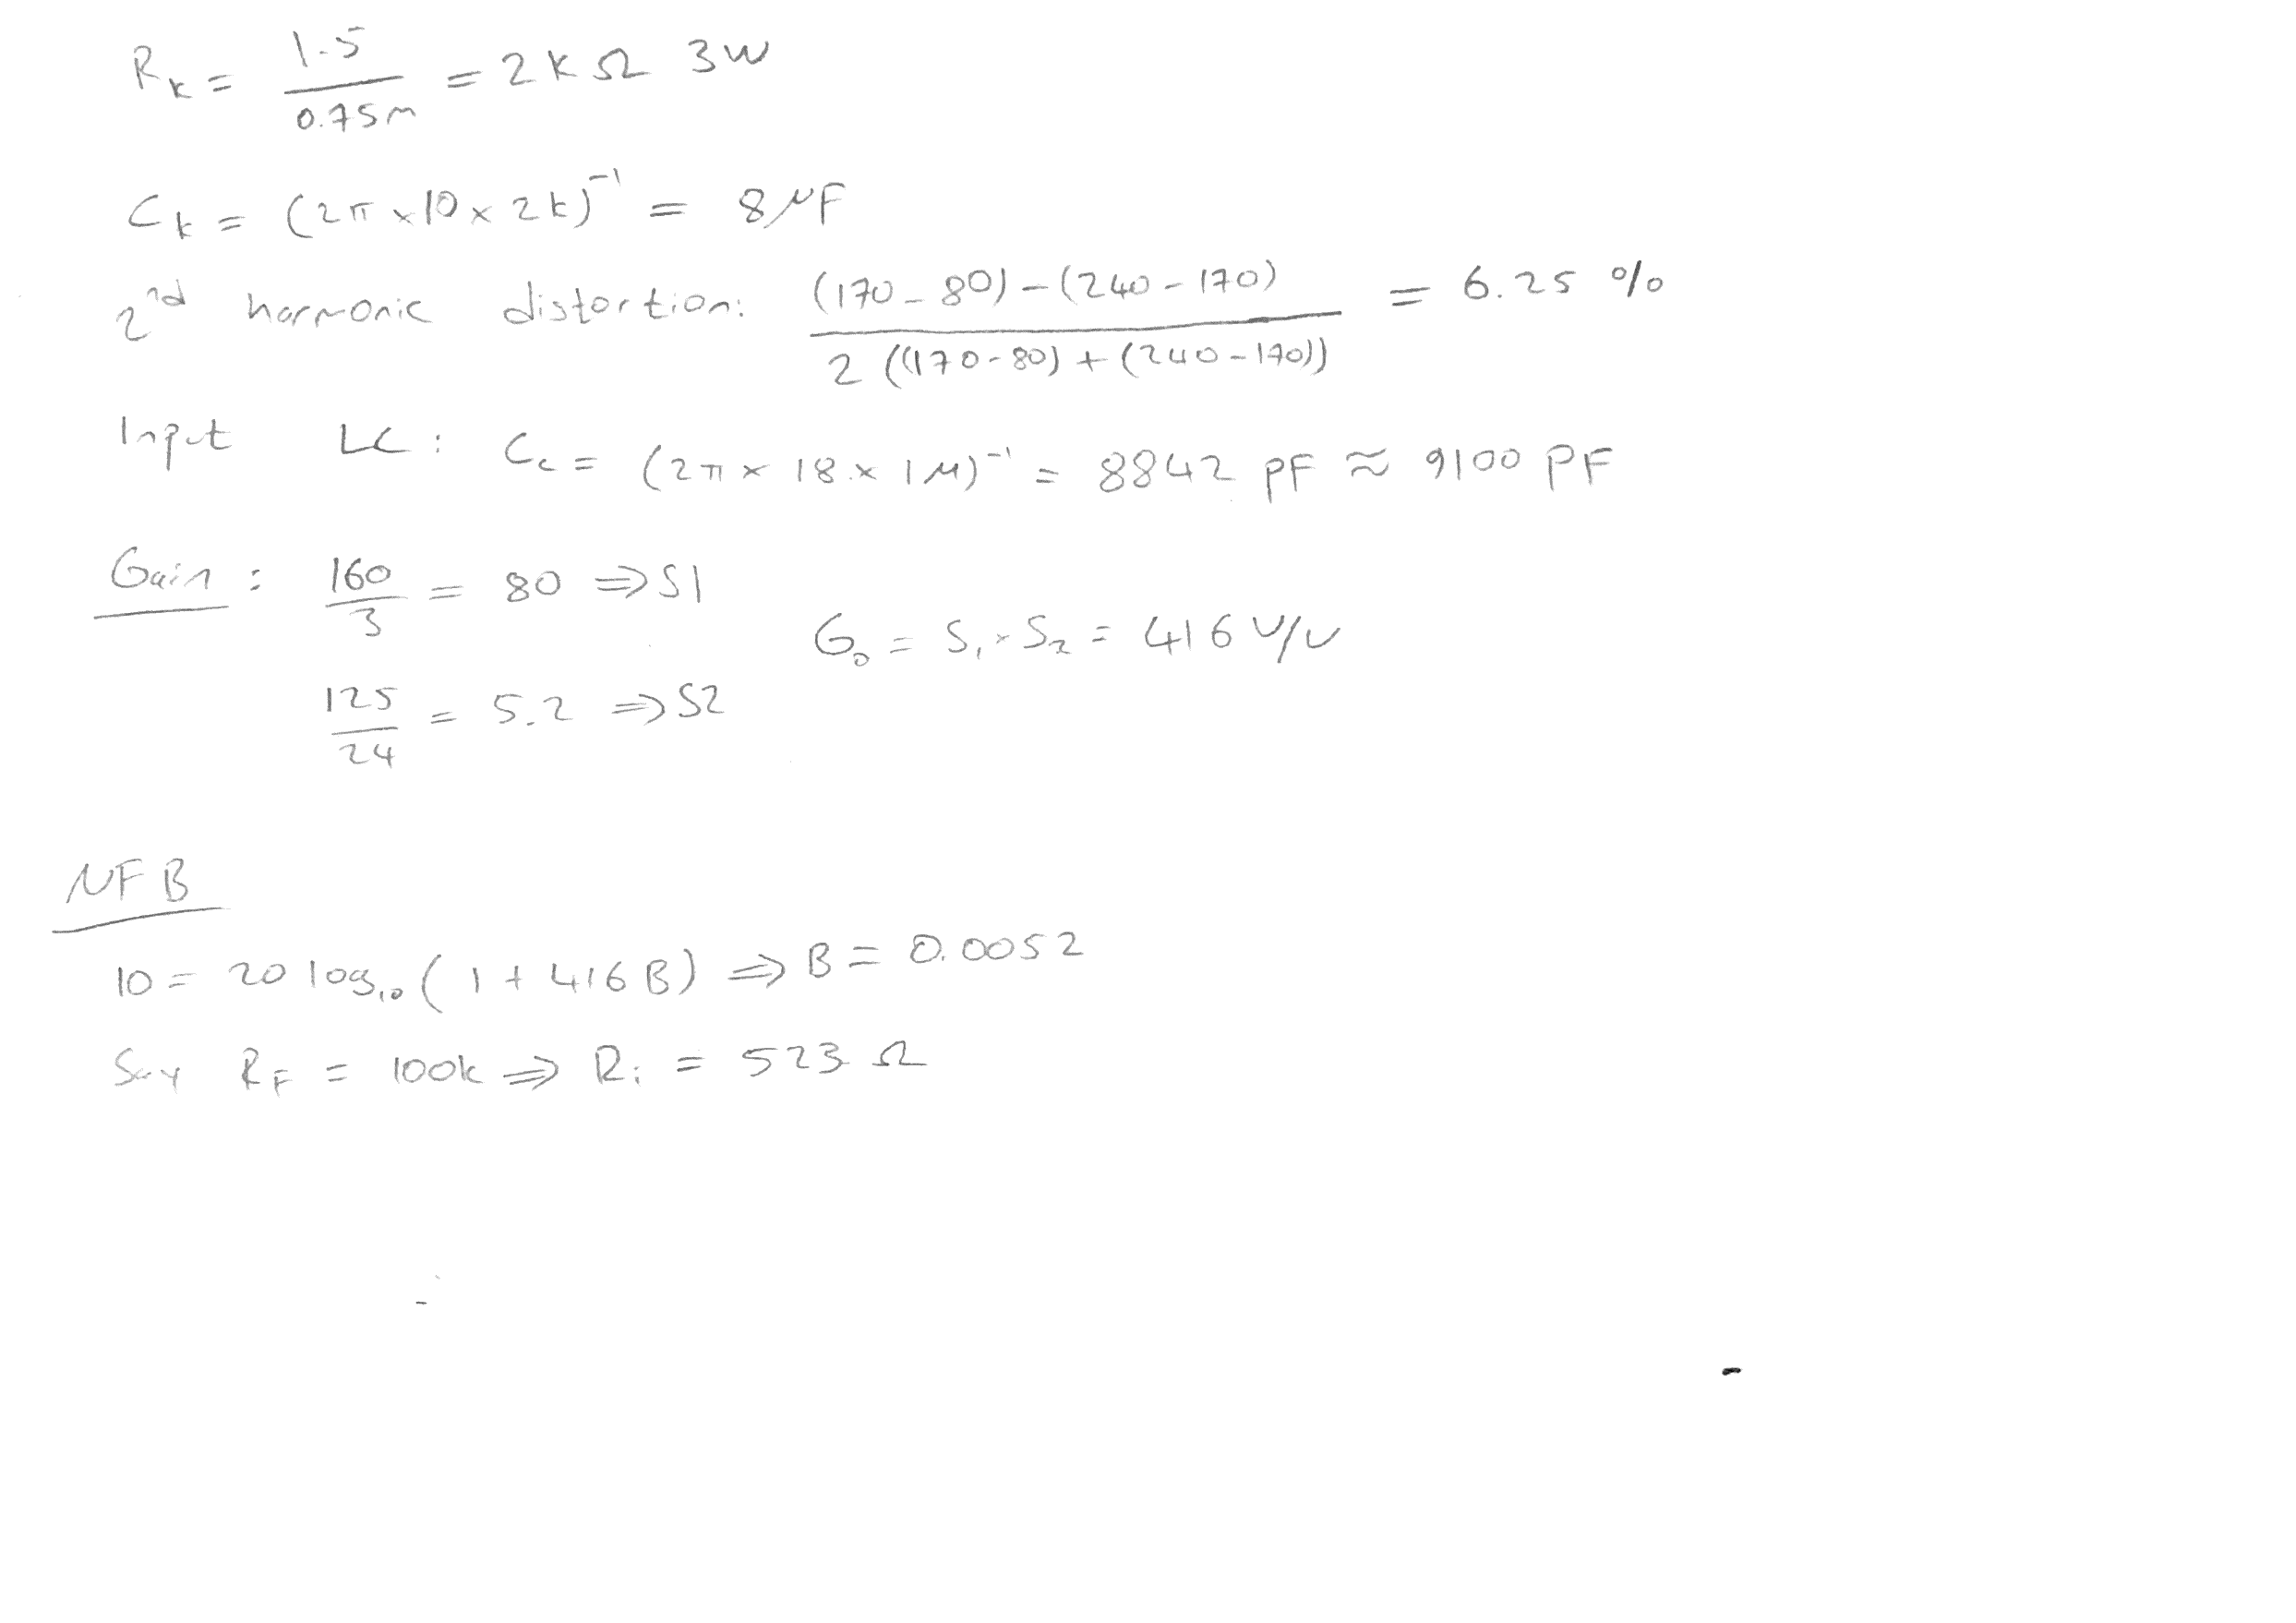 Rk = 1.5 / 0.75m = 2kΩ 3W
Ck = (2π×10×2k)⁻¹ = 8μF
2nd harmonic distortion: (170-80)-(240-170) / 2((170-80)+(240-170)) = 6.25 %
Input LC: Cc = (2π×18×1M)⁻¹ = 8842 pF ≈ 9100 PF
Gain: 160 / 3 = 80 ⇒ S1
G₀ = S₁×S₂ = 416 V/V
125 / 24 = 5.2 ⇒ S2
NFB
10 = 20 log₁₀(1+416B) ⇒ B = 0.0052
Say RF = 100k ⇒ Ri = 523 Ω